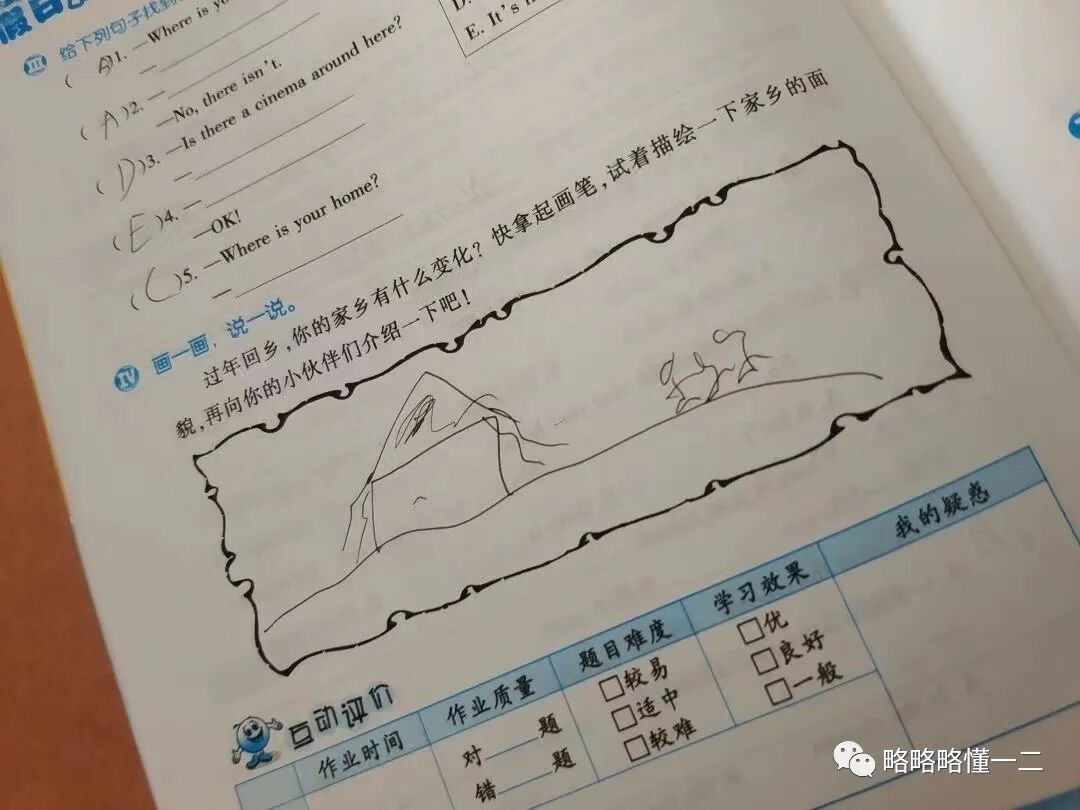 假日
Ⅲ 给下列句子找到
D.
E. It's
( )1. —Where is yo
—
(A)2. —
—No, there isn't.
(D)3. —Is there a cinema around here?
—
(E)4. —
—OK!
(C)5. —Where is your home?
—
Ⅳ 画一画，说一说。
过年回乡，你的家乡有什么变化？快拿起画笔，试着描绘一下家乡的面
貌，再向你的小伙伴们介绍一下吧！
互动评价
作业时间 作业质量 题目难度 学习效果 我的疑惑
对 题 □较易 □优
错 题 □适中 □良好
□较难 □一般
略略略懂一二